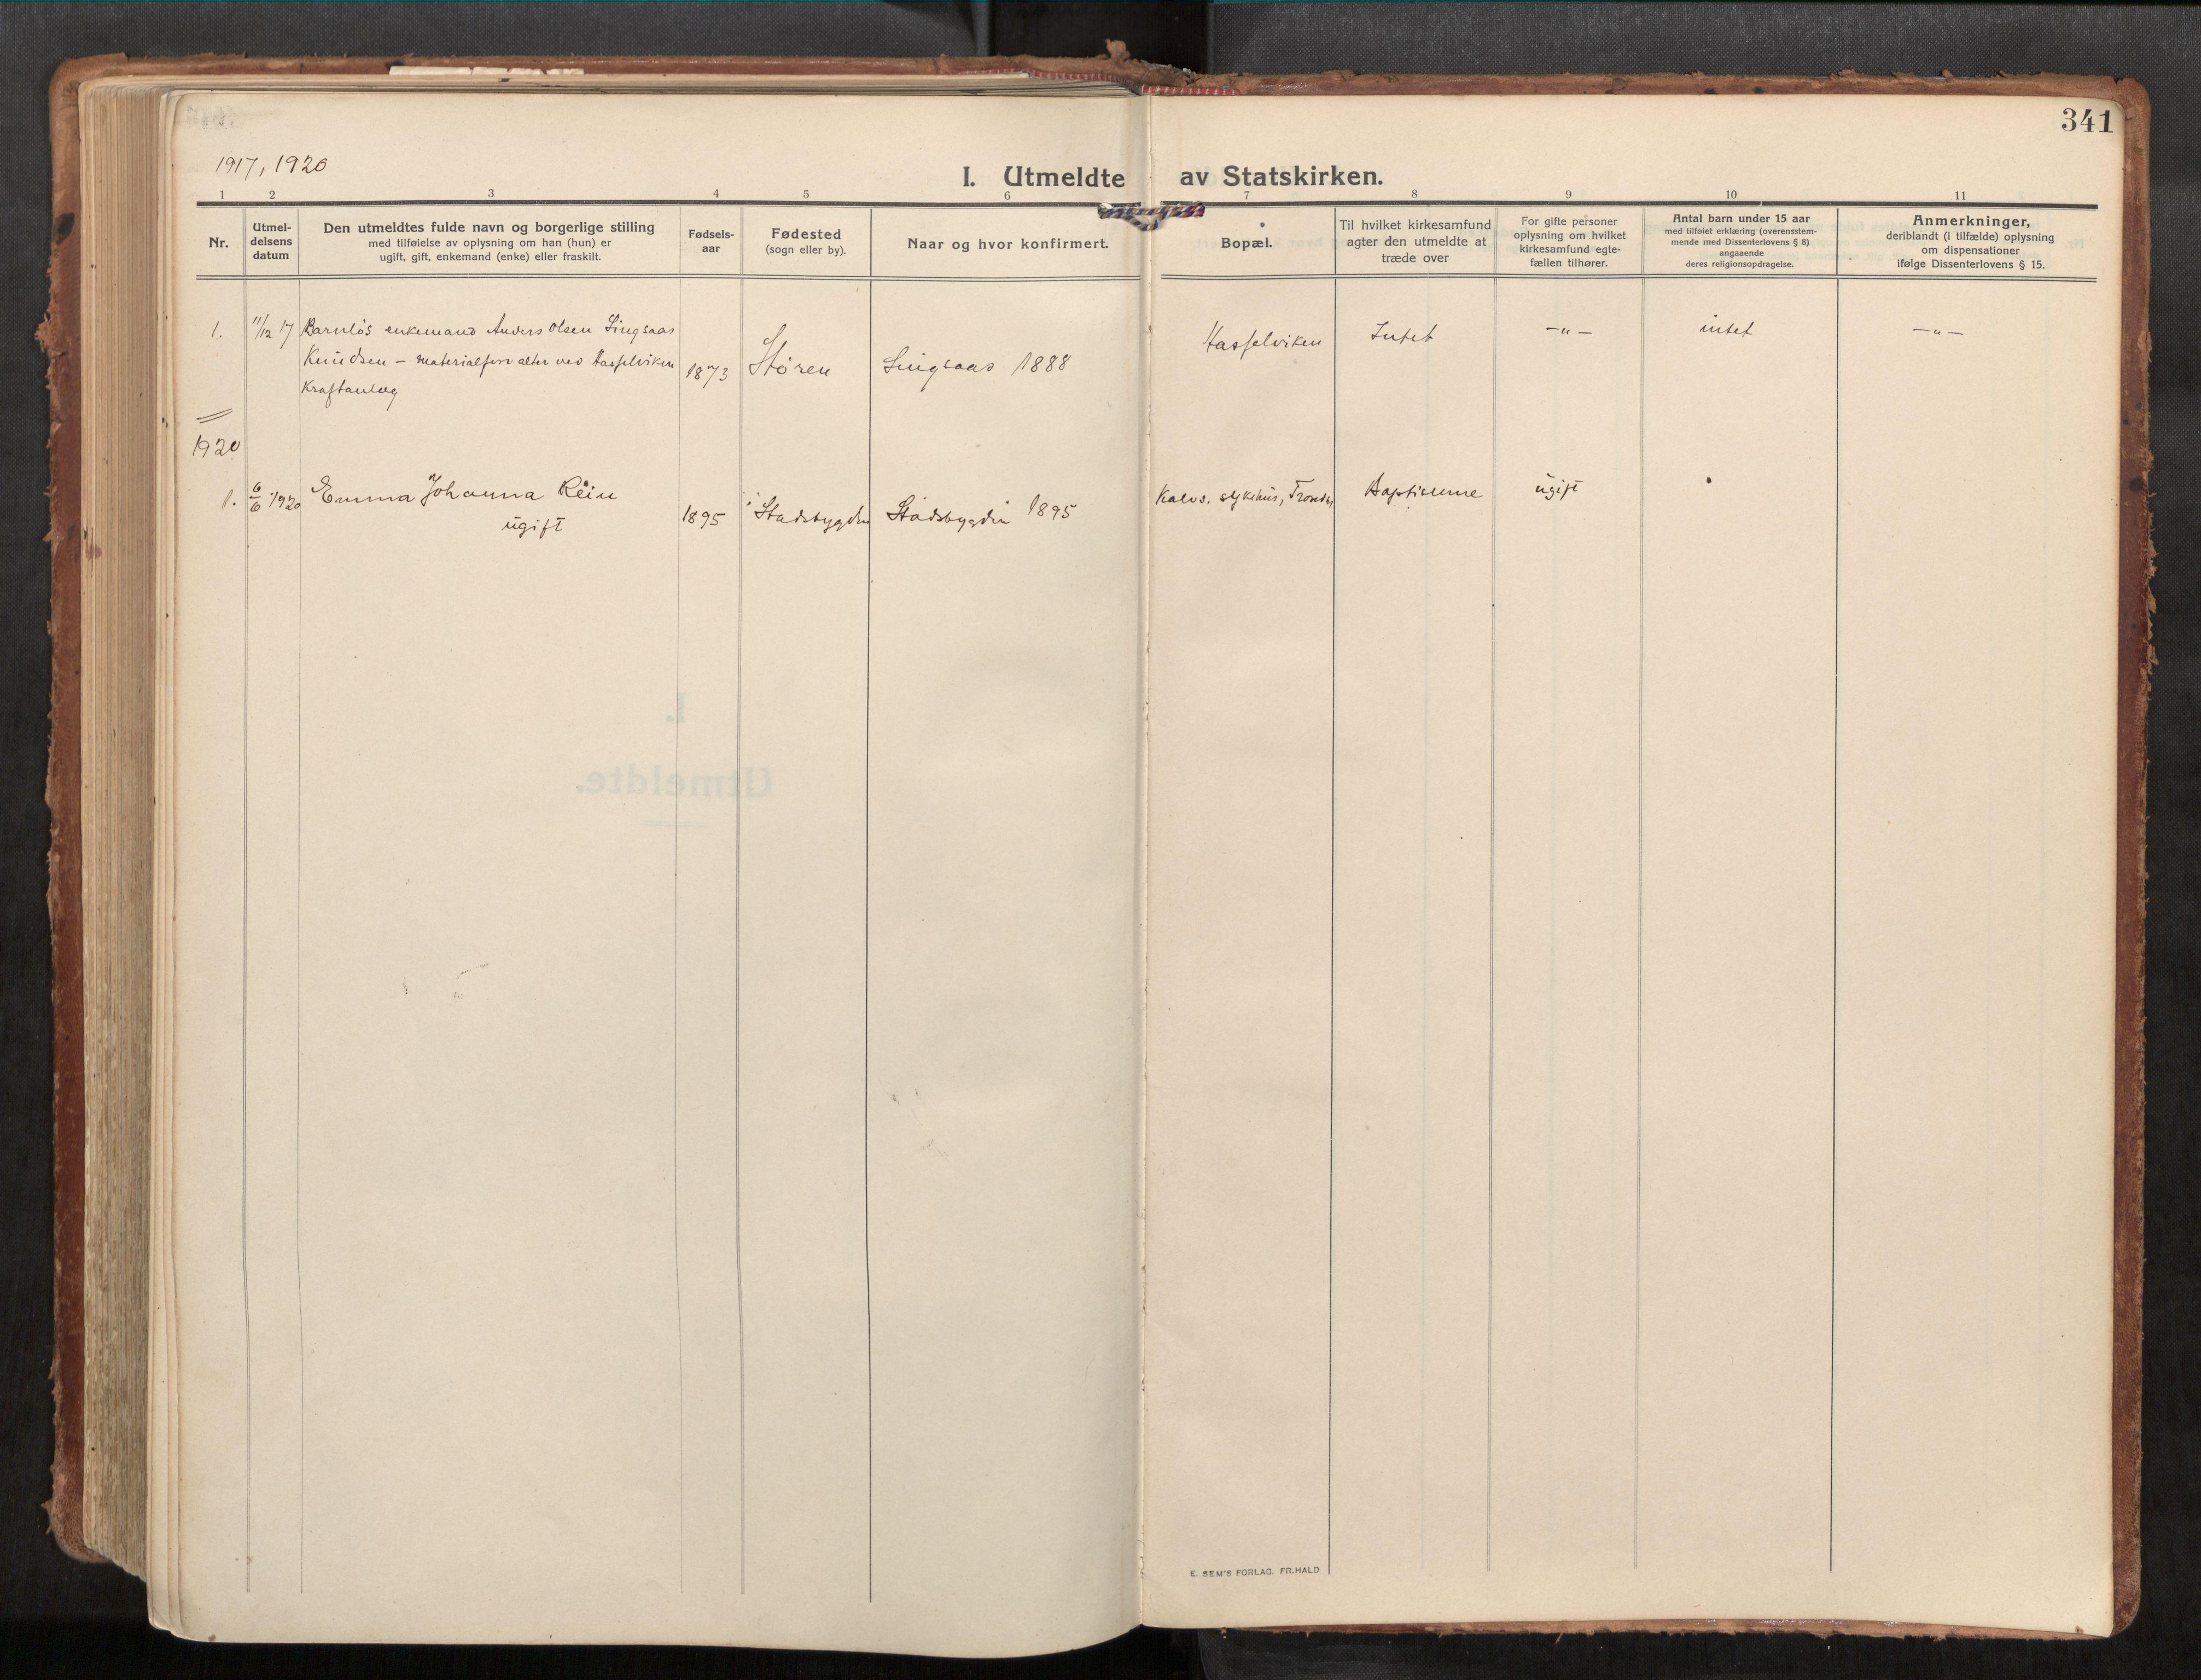 341
1917, 1920
I. Utmeldte av Statskirken.
1 2 3 4 5 6 7 8 9 10 11
Nr.
Utmel-
delsens
datum
Den utmeldtes fulde navn og borgerlige stilling
med tilføielse av oplysning om han (hun) er
ugift, gift, enkemand (enke) eller fraskilt.
Fødsels-
aar
Fødested
(sogn eller by).
Naar og hvor konfirmert.
Bopæl.
Til hvilket kirkesamfund
agter den utmeldte at
træde over
For gifte personer
oplysning om hvilket
kirkesamfund egte-
fællen tilhører.
Antal barn under 15 aar
med tilføiet erklæring (overensstem-
mende med Dissenterlovens § 8)
angaaende
deres religionsopdragelse.
Anmerkninger,
deriblandt (i tilfælde) oplysning
om dispensationer
ifølge Dissenterlovens § 15.
1. 11/12 17 Barnløs enkemand Anders Olsen Singsaas
Knudsen – materialforvalter ved Hasselviken
Kraftanlæg
1873 Støren Singsaas 1888 Hasselviken Intet –"– intet –"–
1920
1. 6/6 1920 Emma Johanna Rein
ugift
1895 Stadsbygden Stadsbygden 1895 Kalvs. sykehus, Trondhj Baptisterne ugift
I.
Utmeldte.
E. SEM'S FORLAG. FR.HALD